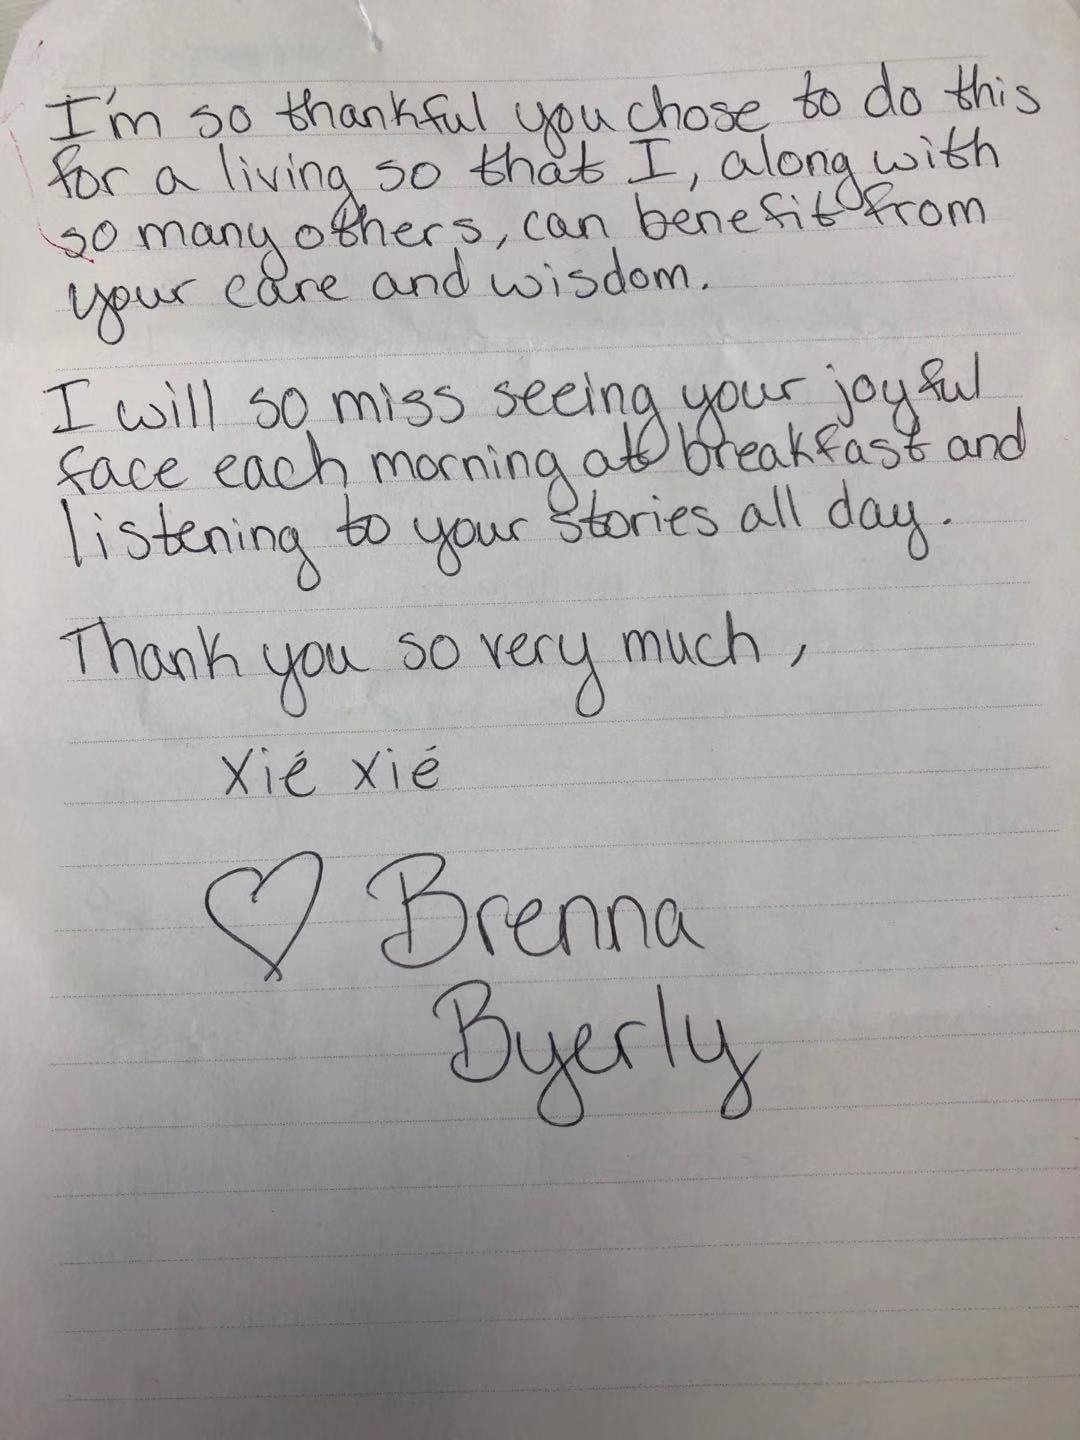 I'm so thankful you chose to do this
for a living so that I, along with
so many others, can benefit from
your care and wisdom.
I will so miss seeing your joyful
face each morning at breakfast and
listening to your stories all day.
Thank you so very much,
Xié xié
♡ Brenna
Byerly